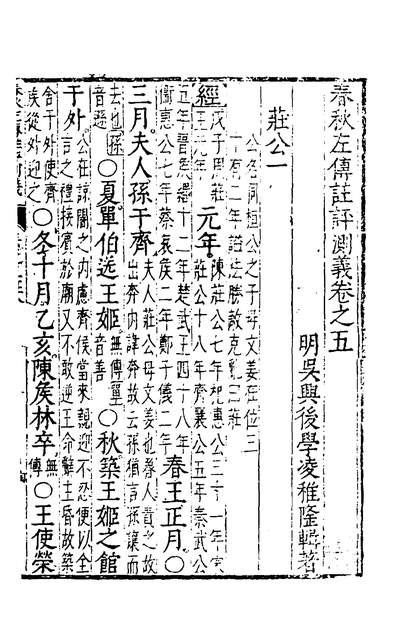 春秋左傳註評測義卷之五
明吳興後學凌稚隆輯著
莊公一
公名同桓公之子母文姜在位三
十有二年諡法勝敵克亂曰莊
經
戊子周莊
王四年
元年
陳莊公七年杞惠公三十一年宋
莊公十八年齊襄公五年秦武公
五年晉緡十二年楚武王四十八年
衞惠公七年蔡哀侯二年鄭子儀二年
春王正月○
三月夫人孫于齊
夫人莊公母文姜也魯人責之故
出奔內諱奔故云孫猶言孫讓而
去也孫
音遜
○夏單伯送王姬
無傳單
音善
○秋築王姬之館
于外
公在諒闇之內慮齊侯當來親迎不忍便以全
言之禮接賓於廟又不敢逆王命辭主昏故築
舍于外使齊
侯從外迎之
○冬十月乙亥陳侯林卒
無
傳
○王使榮